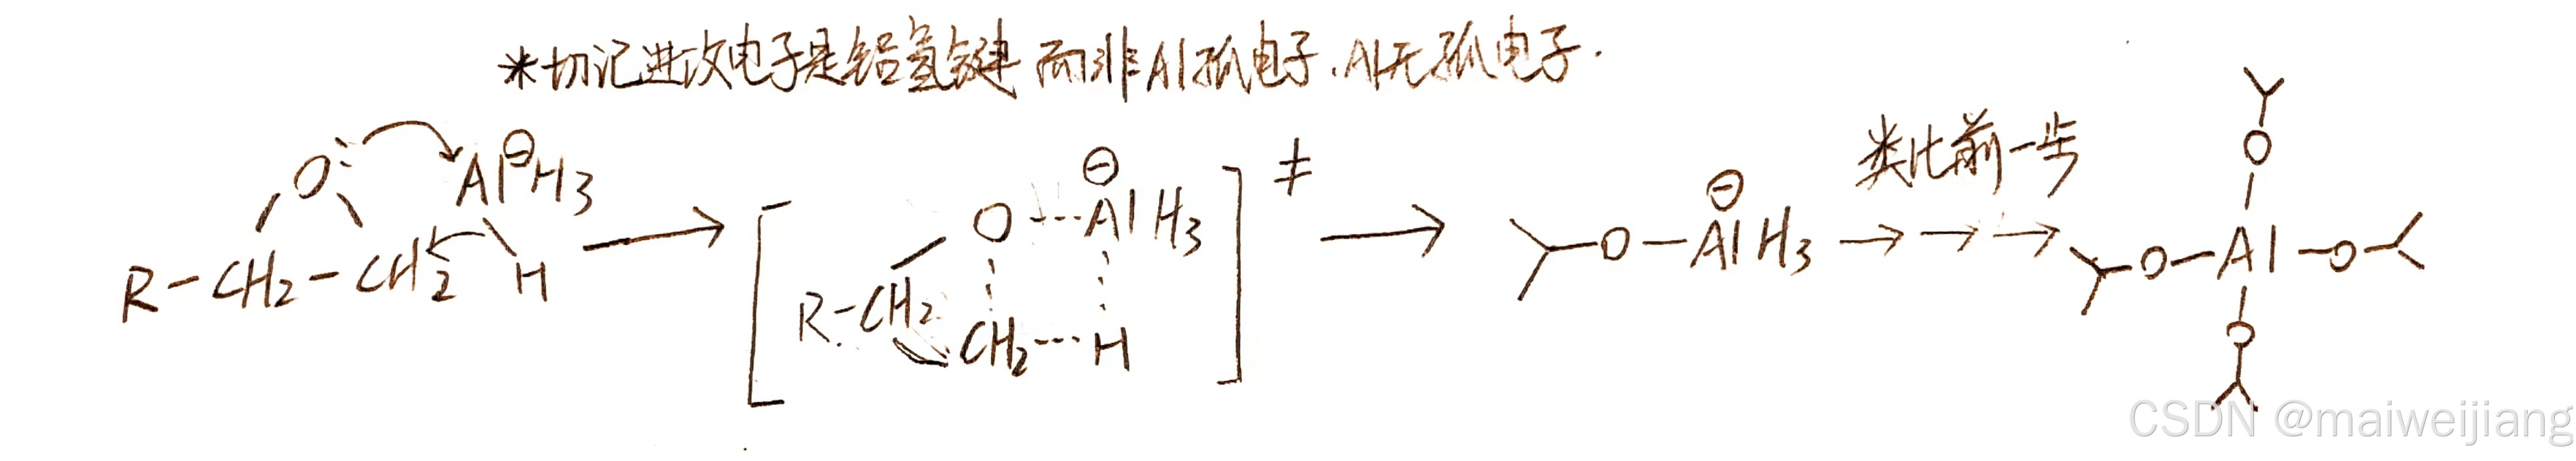 *切记进攻电子是铝氢键 而非Al孤电子.Al无孤电子.
O: Al⊖H3
R-CH2-CH2 H
[ O Al⊖ H3 ]≠
R-CH2 CH2 H
O-Al⊖H3
类比前一步
O
O-Al-O
O
CSDN @maiweijiang